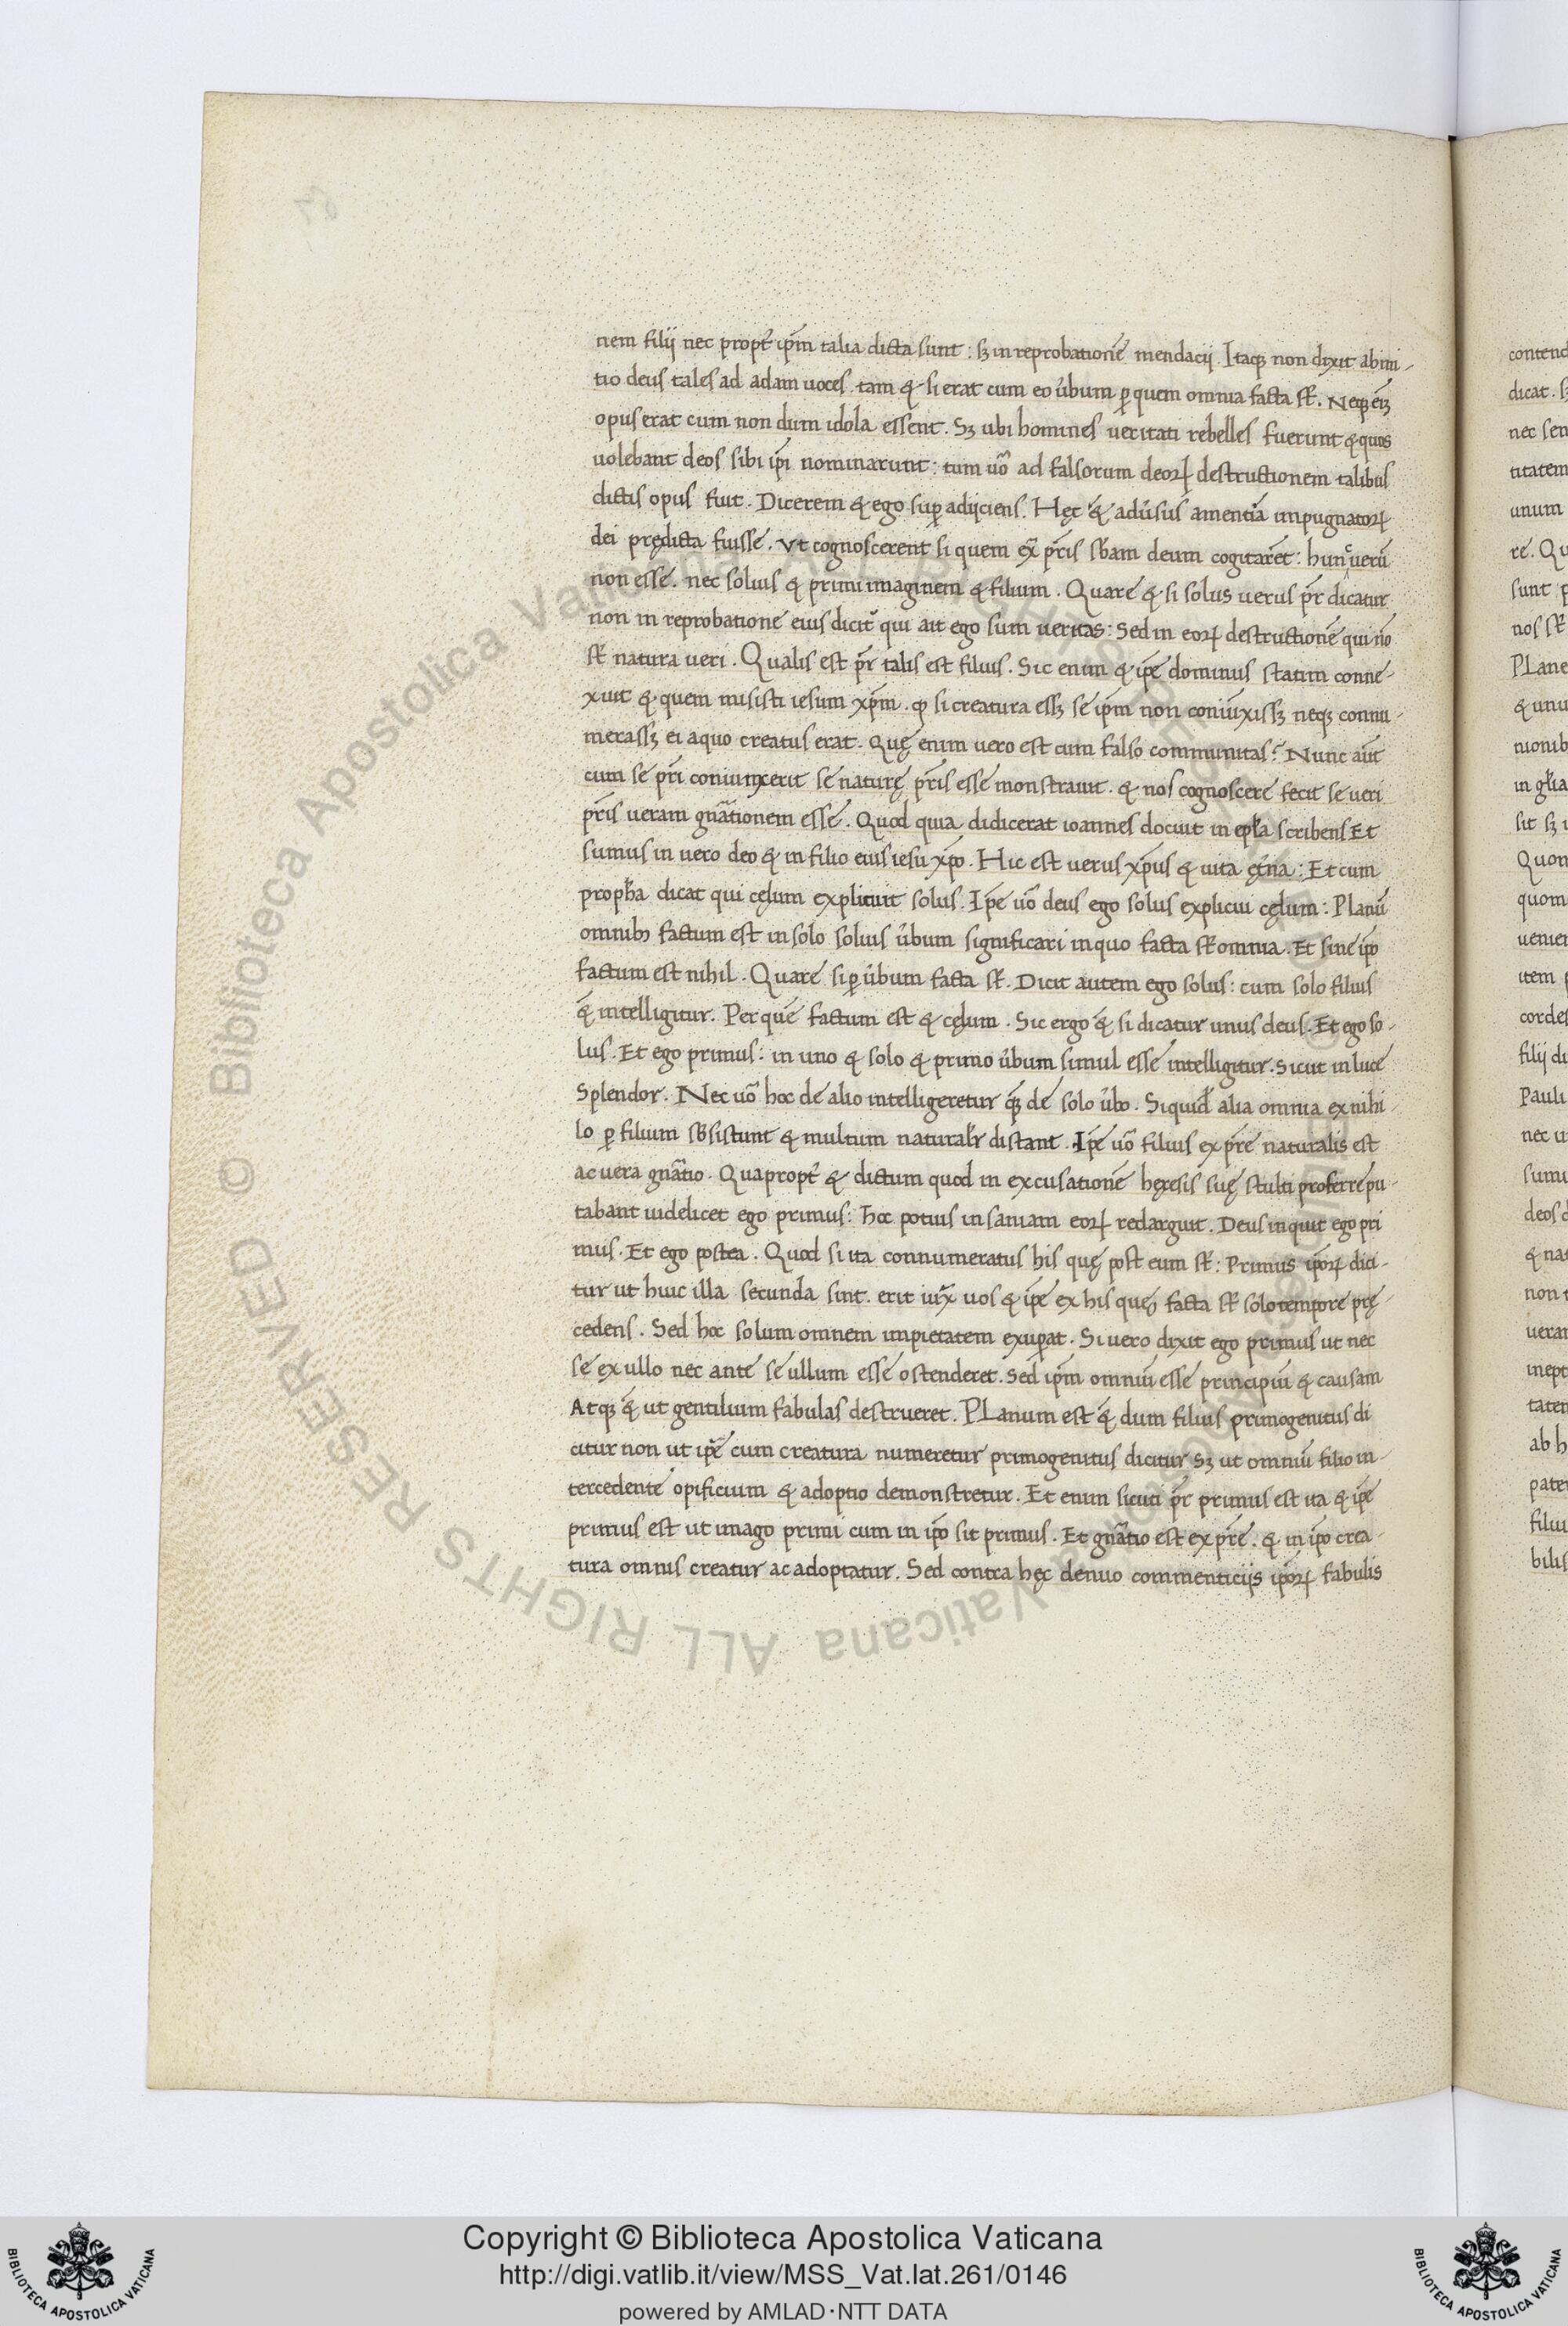 nem filij nec propt̉ ip̄m talia dicta sunt: sꝫ in reprobationē mendacij. Itaqꝫ non dixit ab ini-
tio deus tales ad adam uoces. tam & si erat cum eo ủbum ꝑ quem omnia facta st̄. Neqꝫ eīꝫ
opus erat cum non dum idola essent. Sꝫ ubi homines ueritati rebelles fuerunt & quos
uolebant deos sibi ip̄i nominarunt: tum uo᷒ ad falsorum deoꝝ destructionem talibus
dictis opus fuit. Dicerem & ego suꝑ adijciens. Hęc & adủsus amentiā impugnatoꝝ
dei prędicta fuisse. Vt cognoscerent si quem ex̄ pr̄is sb̄am deum cogitaret: hunc uerū
non esse. nec solius & primi imaginem & filium. Quare & si solus uerus pr̄ dicatur
non in reprobatione eius dicit᷑ qui ait ego sum ueritas: Sed in eoꝝ destructionē qui nō
st̄ natura ueri. Qualis est pr̄ talis est filius. Sic enim & ip̄e dominus statim conne-
xuit & quem misisti iesum xp̄m. ꝙ si creatura essꝫ se ip̄m non coniūxissꝫ neqꝫ connu-
merassꝫ ei a quo creatus erat. Quę enim uero est cum falso communitas? Nunc aūt
cum se pr̄i coniunxerit se naturę pr̄is esse monstrauit. & nos cognoscere fecit se ueri
pr̄is ueram gn̄ationem esse. Quod quia didicerat ioannes docuit in epl̄a scribens Et
sumus in uero deo & in filio eius iesu xp̄o. Hic est uerus xp̄us & uita ęt̉na: Et cum
proph̄a dicat qui cęlum explicuit solus. Ip̄e uo᷒ deus ego solus explicui cęlum: Planū
omnibꝫ factum est in solo solius ủbum significari in quo facta st̄ omnia. Et sine ip̄o
factum est nihil. Quare si ꝑ ủbum facta st̄. Dicit autem ego solus: cum solo filius
& intelligitur. Per quē factum est & cęlum. Sic ergo & si dicatur unus deus. Et ego so-
lus. Et ego primus: in uno & solo & primo ủbum simul esse intelligitur. Sicut in luce
Splendor. Nec uo᷒ hoc de alio intelligeretur q̄ꝫ de solo ủbo. Siquid̄ alia omnia ex nihi-
lo ꝑ filium sb̄sistunt & multum natural̄r distant. Ip̄e uo᷒ filius ex pr̄e naturalis est
ac uera gn̄atio. Quapropt̉ & dictum quod in excusationē hęresis suę stulti proferre pu-
tabant uidelicet ego primus: hoc potius insaniam eoꝝ redarguit. Deus inquit ego pri
mus. Et ego postea. Quod si ita connumeratus his quę post eum st̄: Primus ip̄oꝝ dici-
tur ut huic illa secunda sint. erit iux̄ uos & ip̄e ex his quę facta st̄ solo tempore prę-
cedens. Sed hoc solum omnem impietatem exuꝑat. Si uero dixit ego primus ut nec
se ex ullo nec ante se ullum esse ostenderet. Sed ip̄m omniū esse principiū & causam
Atqꝫ & ut gentilium fabulas destrueret. PLanum est & dum filius primogenitus di
citur non ut ip̄e cum creatura numeretur primogenitus dicitur sꝫ ut omniū filio in-
tercedente opificium & adoptio demonstretur. Et enim sicuti pr̄ primus est ita & ip̄e
primus est ut imago primi cum in ip̄o sit primus. Et gn̄atio est ex pr̄e. & in ip̄o crea-
tura omnis creatur ac adoptatur. Sed contra hęc denuo commenticijs ip̄oꝝ fabulis
contend
dicat. S
nec sen
titatem
unum
re. Qu
sunt p
nos st̄
PLane
& unu
nionib
in gl̄ia
sit sꝫ i
Quon
quom
uenien
item p
cordes
filij di
Pauli
nec u
sumu
deos c
& nat
non t
ueram
inept
taten
ab h
pater
filiu
bilis
© Biblioteca Apostolica Vaticana ALL RIGHTS RESERVED
Copyright © Biblioteca Apostolica Vaticana
http://digi.vatlib.it/view/MSS_Vat.lat.261/0146
powered by AMLAD·NTT DATA
BIBLIOTECA APOSTOLICA VATICANA
BIBLIOTECA APOSTOLICA VATICANA